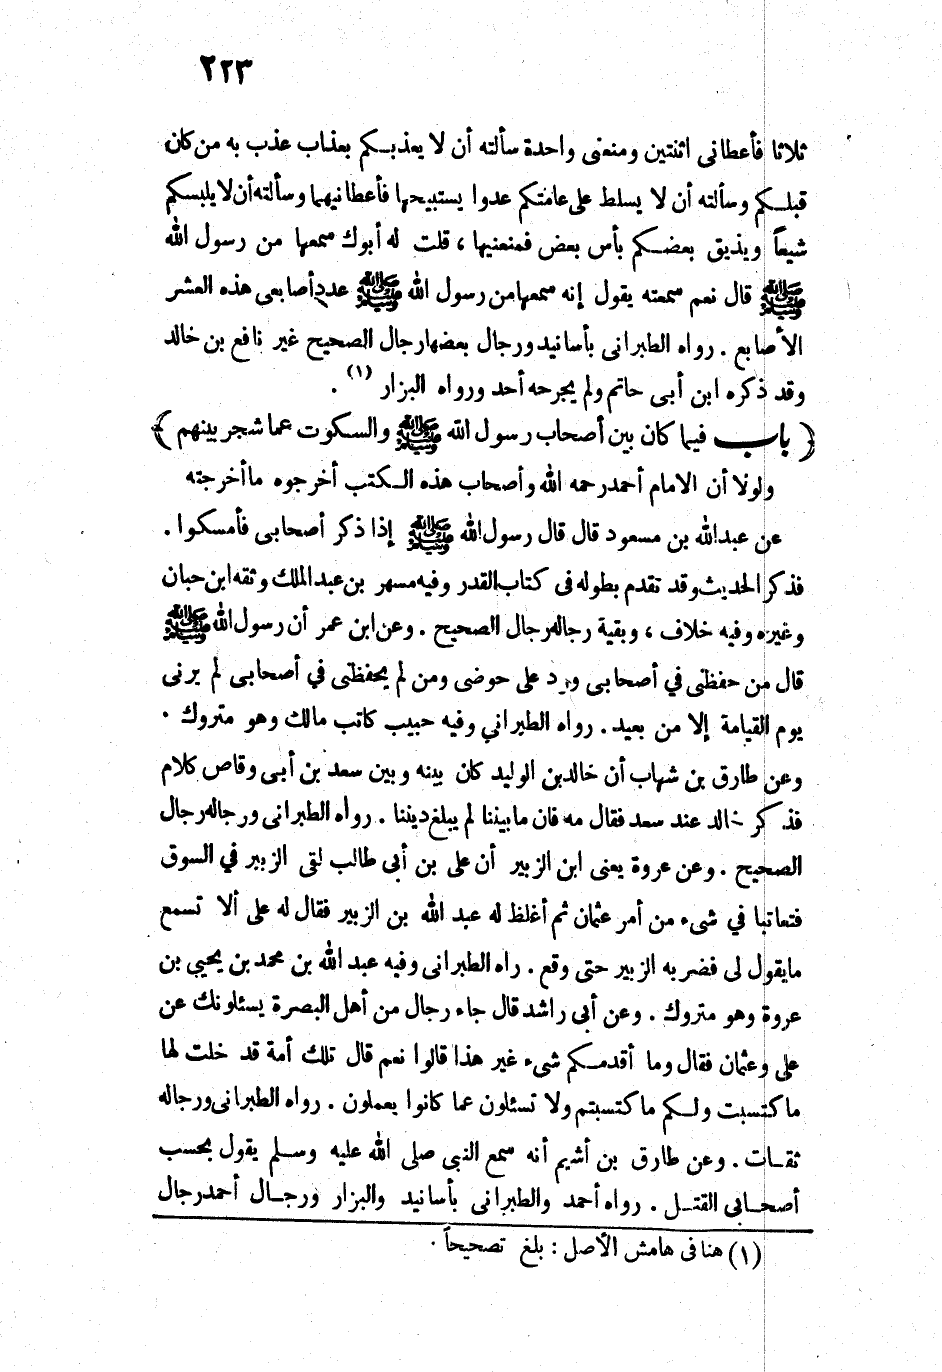 ٢٢٣
ثلاثا فأعطانى اثنتين ومنعنى واحدة سألته أن لا يعذبكم بعذاب عذب به من كان
قبلكم وسألته أن لا يسلط على عامتكم عدوا يستبيحها فأعطانيهما وسألته أن لا يلبسكم
شيعاً ويذيق بعضكم بأس بعض فمنعنيها ، قلت له أبوك سمعها من رسول الله
ﷺ قال نعم سمعته يقول إنه سمعها من رسول الله ﷺ عدد أصابعى هذه العشر
الأصابع . رواه الطبرانى بأسانيد ورجال بعضها رجال الصحيح غير نافع بن خالد
وقد ذكره ابن أبى حاتم ولم يجرحه أحد ورواه البزار (١) .
﴿ باب فيما كان بين أصحاب رسول الله ﷺ والسكوت عما شجر بينهم ﴾
ولولا أن الامام أحمد رحمه الله وأصحاب هذه الكتب أخرجوه ما أخرجته
عن عبدالله بن مسعود قال قال رسول الله ﷺ إذا ذكر أصحابى فأمسكوا .
فذكر الحديث وقد تقدم بطوله فى كتاب القدر وفيه مسهر بن عبد الملك وثقه ابن حبان
وغيره وفيه خلاف ، وبقية رجاله رجال الصحيح . وعن ابن عمر أن رسول الله ﷺ
قال من حفظنى في أصحابى ورد على حوضى ومن لم يحفظنى في أصحابى لم يرنى
يوم القيامة إلا من بعيد . رواه الطبراني وفيه حبيب كاتب مالك وهو متروك .
وعن طارق بن شهاب أن خالد بن الوليد كان بينه وبين سعد بن أبى وقاص كلام
فذكر خالد عند سعد فقال مه فان ما بيننا لم يبلغ ديننا . رواه الطبرانى ورجاله رجال
الصحيح . وعن عروة يعنى ابن الزبير أن على بن أبى طالب لقى الزبير في السوق
فتعاتبا في شىء من أمر عثمان ثم أغلظ له عبد الله بن الزبير فقال له على ألا تسمع
ما يقول لى فضربه الزبير حتى وقع . راه الطبرانى وفيه عبد الله بن محمد بن يحيى بن
عروة وهو متروك . وعن أبى راشد قال جاء رجال من أهل البصرة يسئلونك عن
على وعثمان فقال وما أقدمكم شىء غير هذا قالوا نعم قال تلك أمة قد خلت لها
ما كتسبت ولكم ما كتسبتم ولا تسئلون عما كانوا يعملون . رواه الطبرانى ورجاله
ثقات . وعن طارق بن أشيم أنه سمع النبى صلى الله عليه وسلم يقول بحسب
أصحابى القتل . رواه أحمد والطبرانى بأسانيد والبزار ورجال أحمد رجال
(١) هنا فى هامش الأصل : بلغ تصحيحاً .